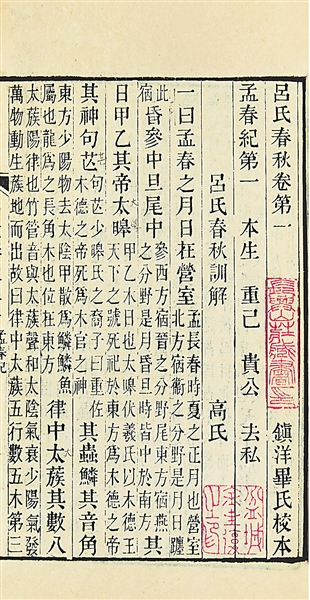 呂氏春秋卷第一 鎮洋畢氏校本
孟春紀第一 本生 重己 貴公 去私
呂氏春秋訓解 高氏
一曰孟春之月日在營室
孟長春時夏之正月也營室
北方宿衞之分野是月日躔
此宿
昏參中旦尾中
參西方宿晉之分野尾東方宿燕
之分野是月昏旦時皆中於南方
其
日甲乙其帝太皥
甲乙木日也太皥伏羲氏以木德王
天下之號死祀於東方爲木德之帝
其神句芒
句芒少皥氏之裔子曰重佐
木德之帝死爲木官之神
其蟲鱗其音角
東方少陽物去太陰甲散爲鱗鱗魚
屬也龍爲之長角木也位在東方
律中太蔟其數八
太蔟陽律也竹管音與太蔟聲和太陰氣衰少陽氣發
萬物動生蔟地而出故曰律中太蔟五行數五木第三